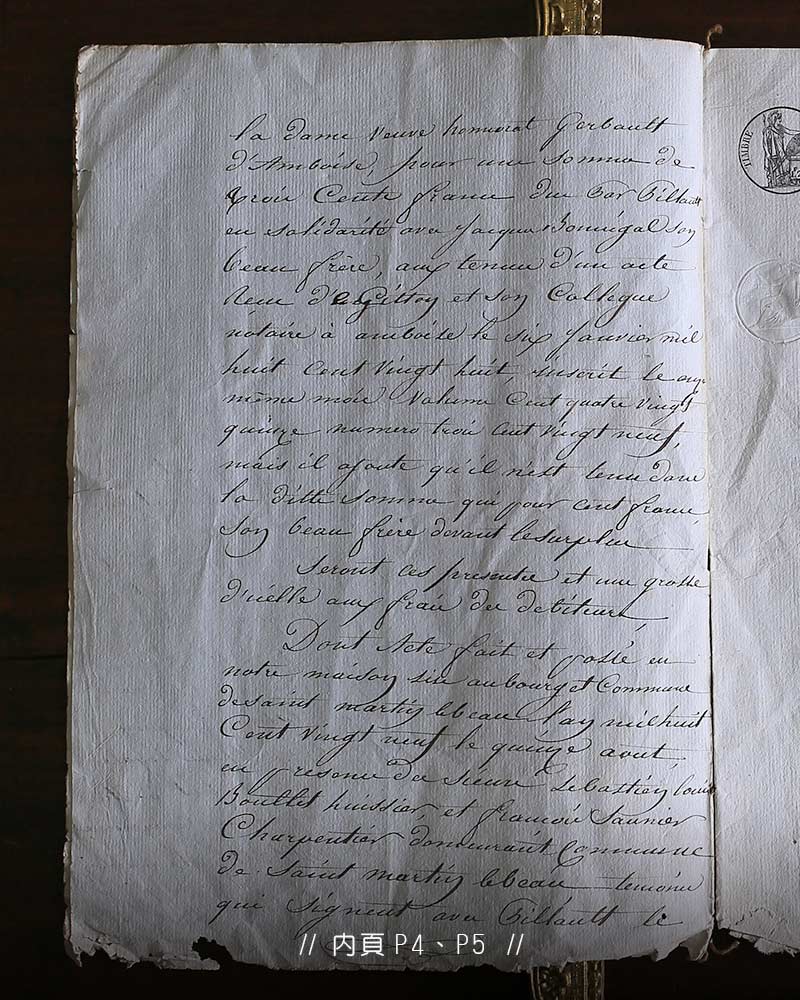 la dame veuve honnorat Gerbault
d'Amboise, pour une somme de
trois Cents francs due par Billault
en solidarité avec Jacques Bonnigal son
beau frère, aux termes d'un acte
Recu de Gitton et son Collegue
notaire à amboise le six Janvier mil
huit cent vingt huit, inscrit le onze
même mois Volume Cent quatre vingt
quinze numero trois cent vingt neuf,
mais il ajoute qu'il n'est tenu dans
la ditte somme que pour cent francs
son beau frère devant le surplus
Seront ces presentes et une grosse
d'icelle aux frais du debiteur
Dont Acte fait et passé en
notre maison sise au bourg et Commune
de Saint martin le beau l'an mil huit
Cent vingt neuf le quinze aout,
en presence des sieurs Sebastien Louis
Boullet huissier, et francois Saunier
Charpentier demeurant Commune
de Saint martin le beau temoins
qui signent avec Billault le
// 內頁 P4、P5 //
TIMBRE